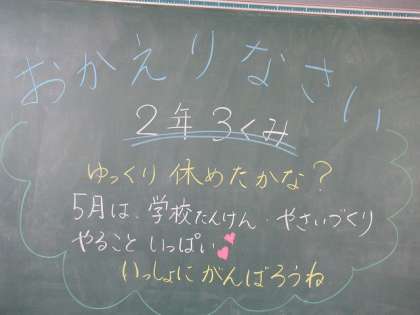 おかえりなさい
2年3くみ
ゆっくり休めたかな?
5月は、学校たんけん・やさいづくり
やること いっぱい
いっしょに がんばろうね